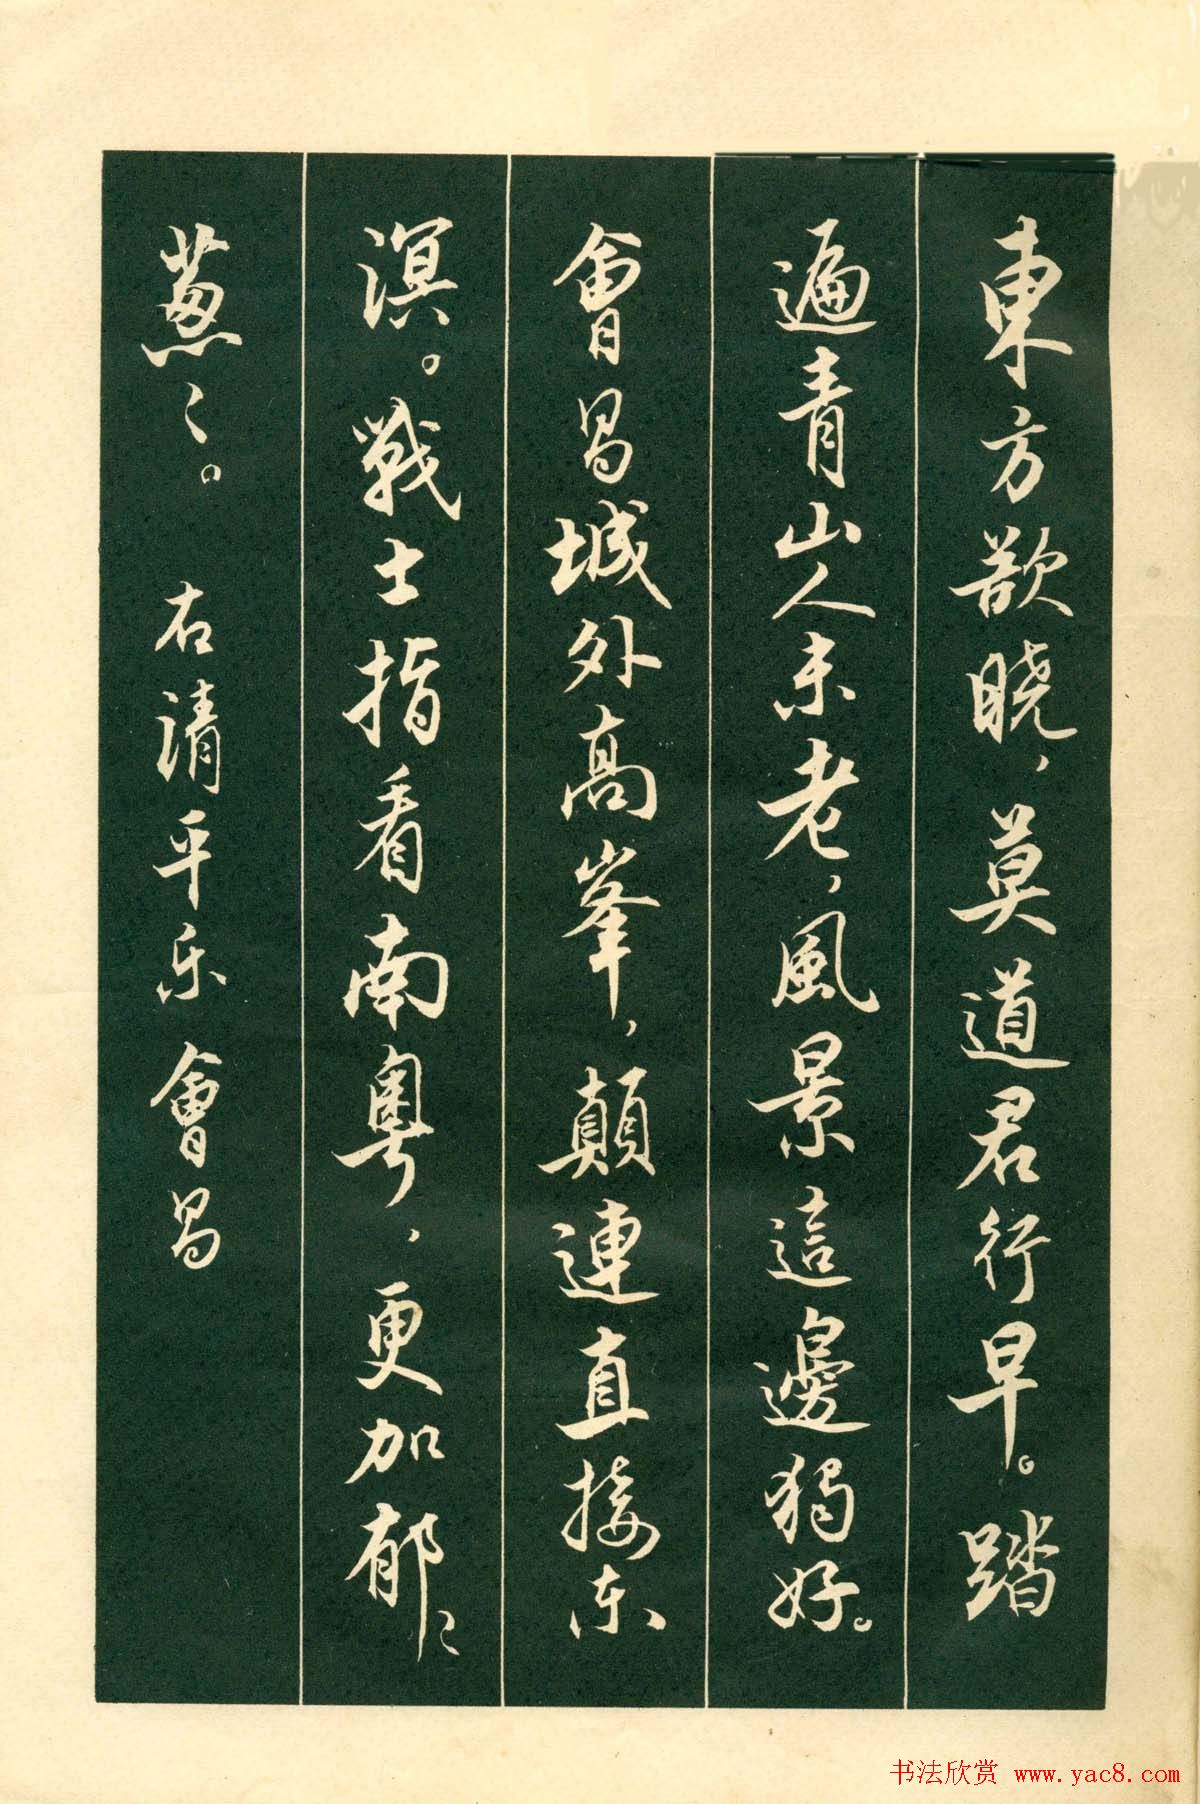 東方欲曉，莫道君行早。踏
遍青山人未老，風景這邊獨好。
會昌城外高峯，顛連直接东
溟。戰士指看南粤，更加郁〻
葱〻。 右清平乐 會昌
书法欣赏 www.yac8.com